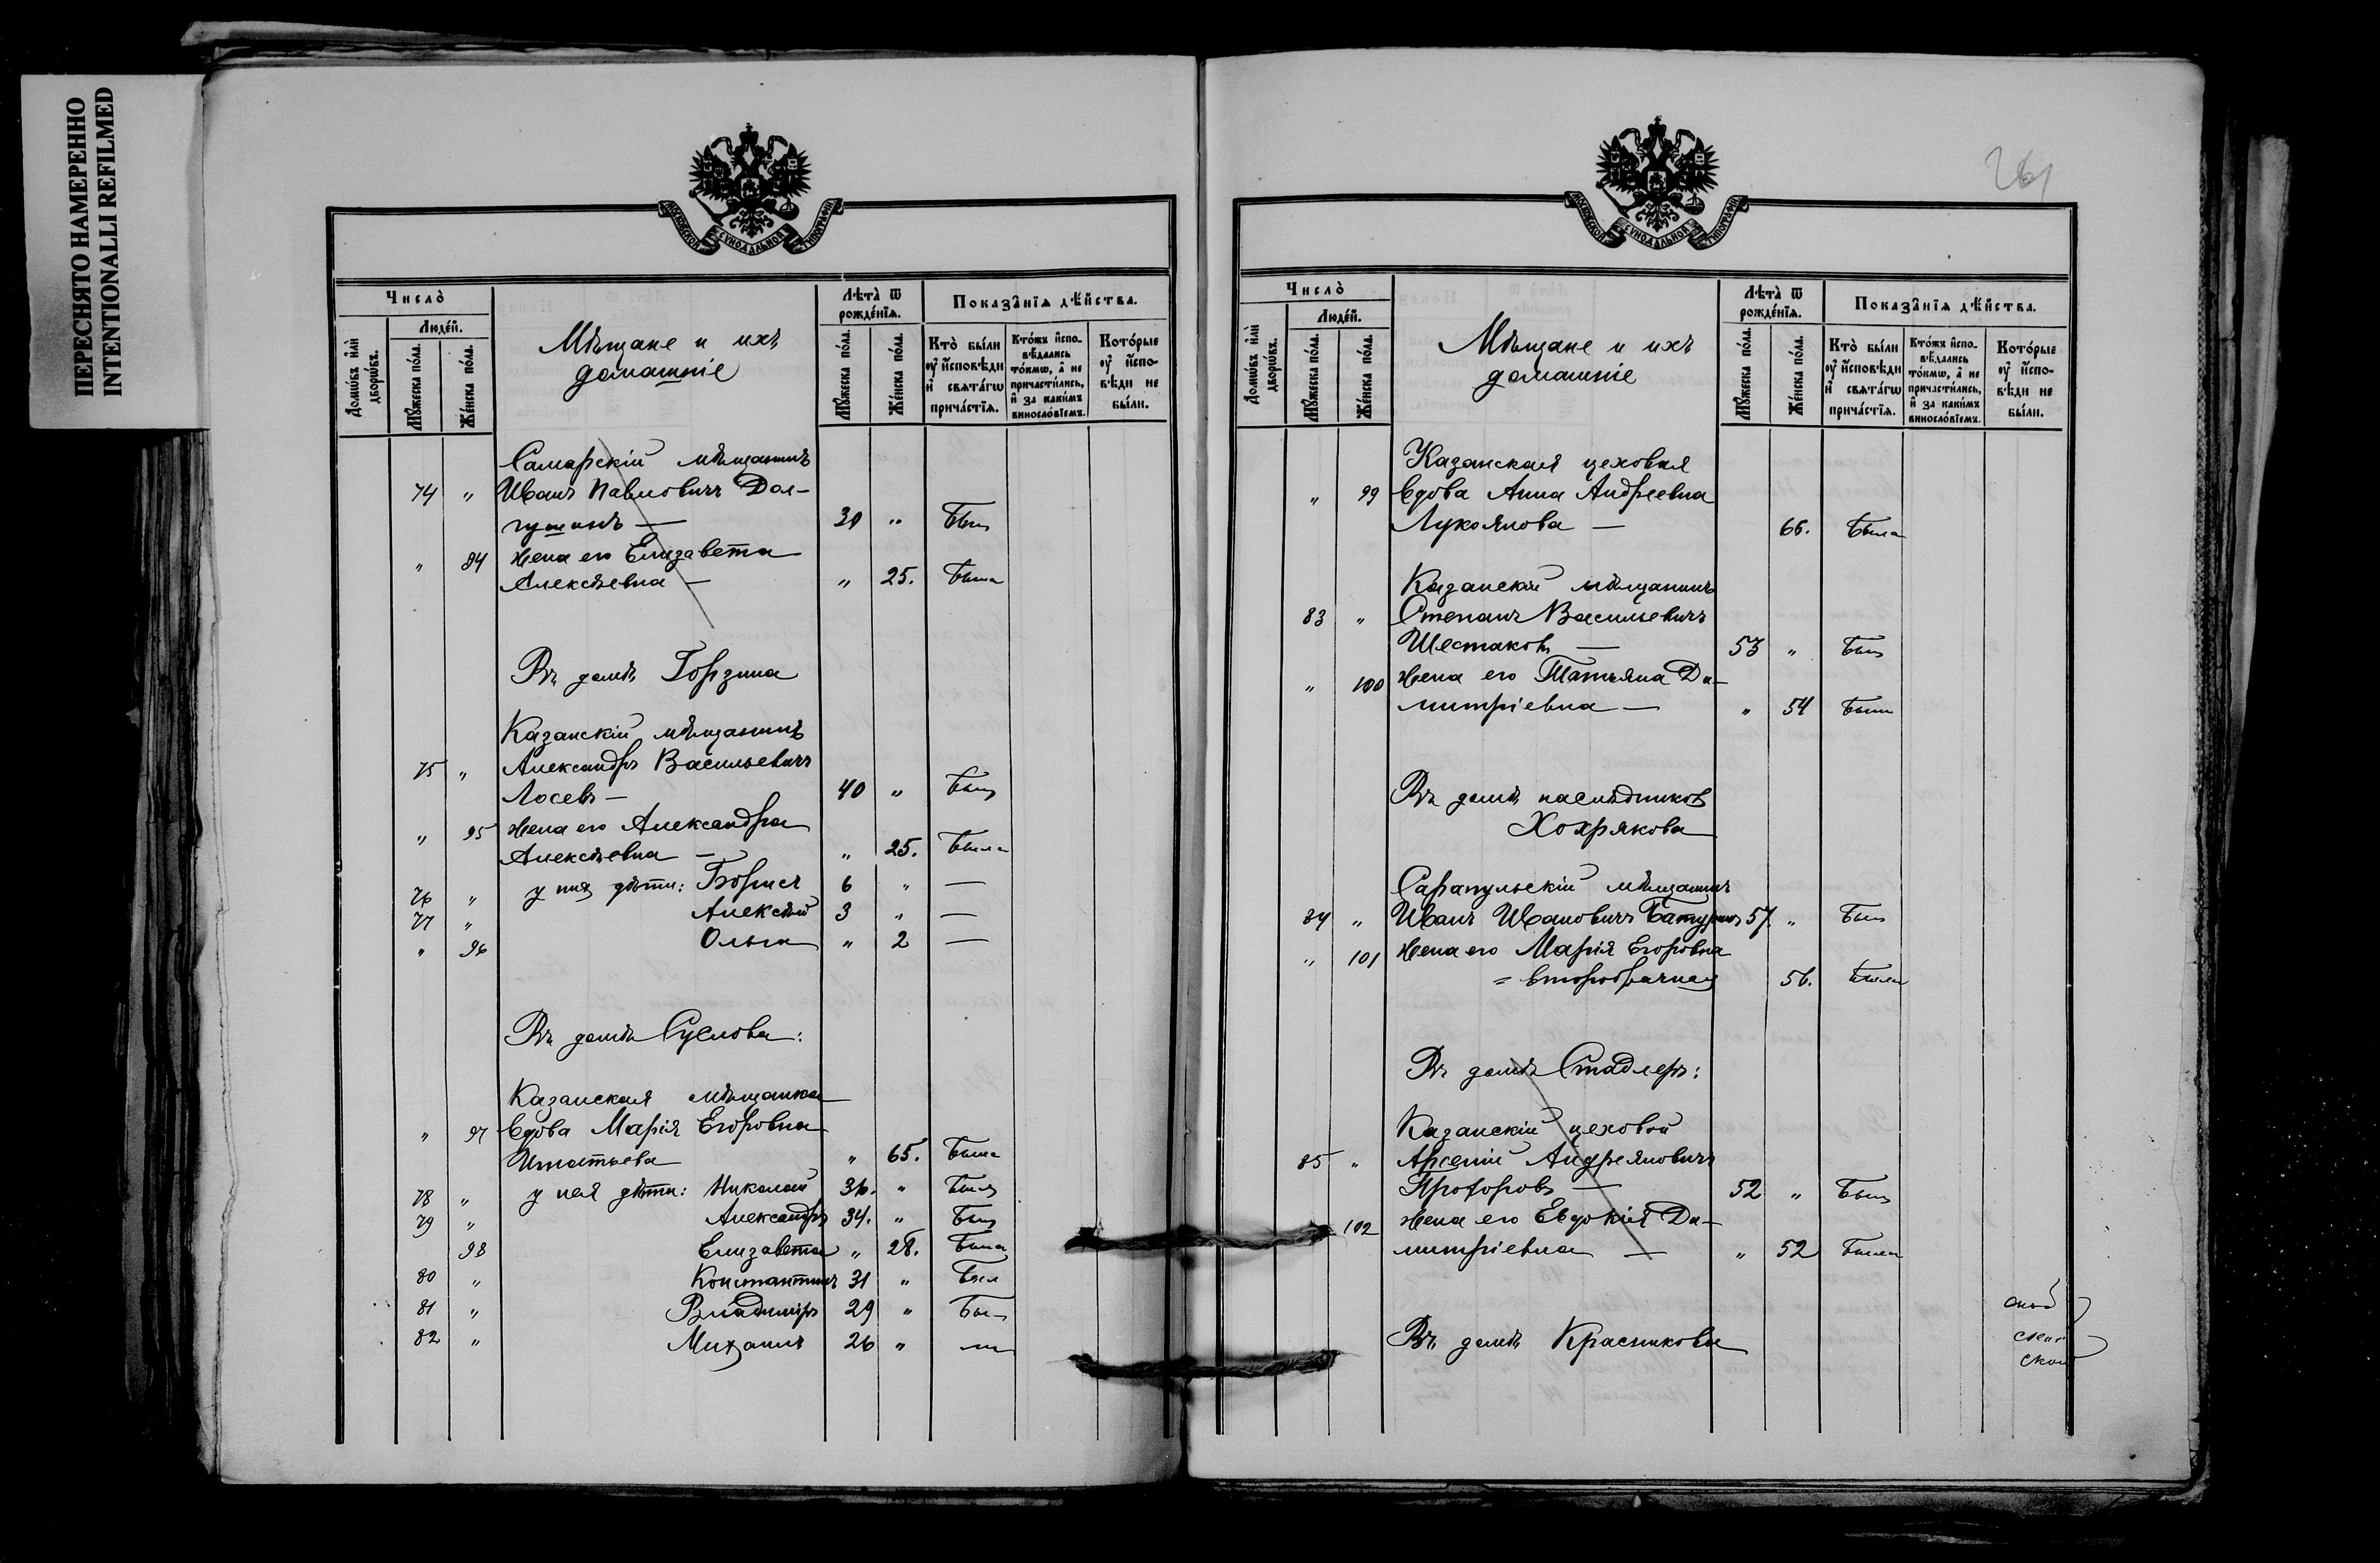 ПЕРЕСНЯТО НАМЕРЕННО
INTENTIONALLI REFILMED
МОСКОВСКОЙ СѴНОДАЛЬНОЙ ТИПОГРАФІИ
Число̀
Домѡ́въ и҆лѝ дворѡ́въ.
Люде́й.
Мꙋ́жеска по́ла.
Же́нска по́ла.
Мѣщане и ихъ
домашніе
Лѣта̀ ѿ рожде́нїѧ.
Мꙋ́жеска по́ла.
Же́нска по́ла.
Показа̑нїѧ дѣ́йства.
Кто̀ бы́ли ᲂу҆ и҆сповѣ́ди и҆ свѧта́гѡ прича́стїѧ.
Кто́жъ и҆спо­вѣ́дались то́кмѡ, а҆ не причасти́лись, и҆ за каки́мъ виносло́вїемъ.
Кото́рые ᲂу҆ и҆спо­вѣ́ди не бы́ли.
Самарскій мѣщанинъ
74 " Иванъ Павловичъ Дол-
гушинъ — 30 " Былъ
" 94 Жена его Елизавета
Алексѣевна — " 25. Была
Въ домѣ Горзина
Казанскій мѣщанинъ
75 " Александръ Васильевичъ
Лосевъ — 40 " Былъ
" 95 Жена его Александра
Алексѣевна — " 25. Была
76 " у нихъ дѣти: Борисъ 6 " —
77 " Алексѣй 3 " —
" 96 Ольга " 2 —
Въ домѣ Суслова:
Казанская мѣщанка
" 97 вдова Марія Егоровна
Игнатьева " 65. Была
78 " у нея дѣти: Николай 36. " Былъ
79 " Александръ 34. " Былъ
98 Елизавета " 28. Была
80 " Константинъ 31 " Был
81 " Владиміръ 29 " Бы-
82 " Михаилъ 26 "
261
МОСКОВСКОЙ СѴНОДАЛЬНОЙ ТИПОГРАФІИ
Число̀
Домѡ́въ и҆лѝ дворѡ́въ.
Люде́й.
Мꙋ́жеска по́ла.
Же́нска по́ла.
Мѣщане и ихъ
домашніе
Лѣта̀ ѿ рожде́нїѧ.
Мꙋ́жеска по́ла.
Же́нска по́ла.
Показа̑нїѧ дѣ́йства.
Кто̀ бы́ли ᲂу҆ и҆сповѣ́ди и҆ свѧта́гѡ прича́стїѧ.
Кто́жъ и҆спо­вѣ́дались то́кмѡ, а҆ не причасти́лись, и҆ за каки́мъ виносло́вїемъ.
Кото́рые ᲂу҆ и҆спо­вѣ́ди не бы́ли.
Казанская цеховая
" 99 вдова Анна Андреевна
Лукоянова — 66. Была
Казанскій мѣщанинъ
83 " Степанъ Васильевичъ
Шестаковъ — 53 " Былъ
" 100 Жена его Татьяна Ди-
митріевна — " 54 Была
Въ домѣ наслѣдниковъ
Хохрякова
Сарапульскій мѣщанинъ
84 " Иванъ Ивановичъ Батуринъ 57. " Былъ
" 101 Жена его Марія Егоровна
= второбрачная 56. Была
Въ домѣ Стадлеръ:
Казанскій цеховой
85 " Арсеній Андреяновичъ
Прохоровъ — 52 " Былъ
102 Жена его Евдокія Ди-
митріевна — " 52 Была
Въ домѣ Красикова
ской